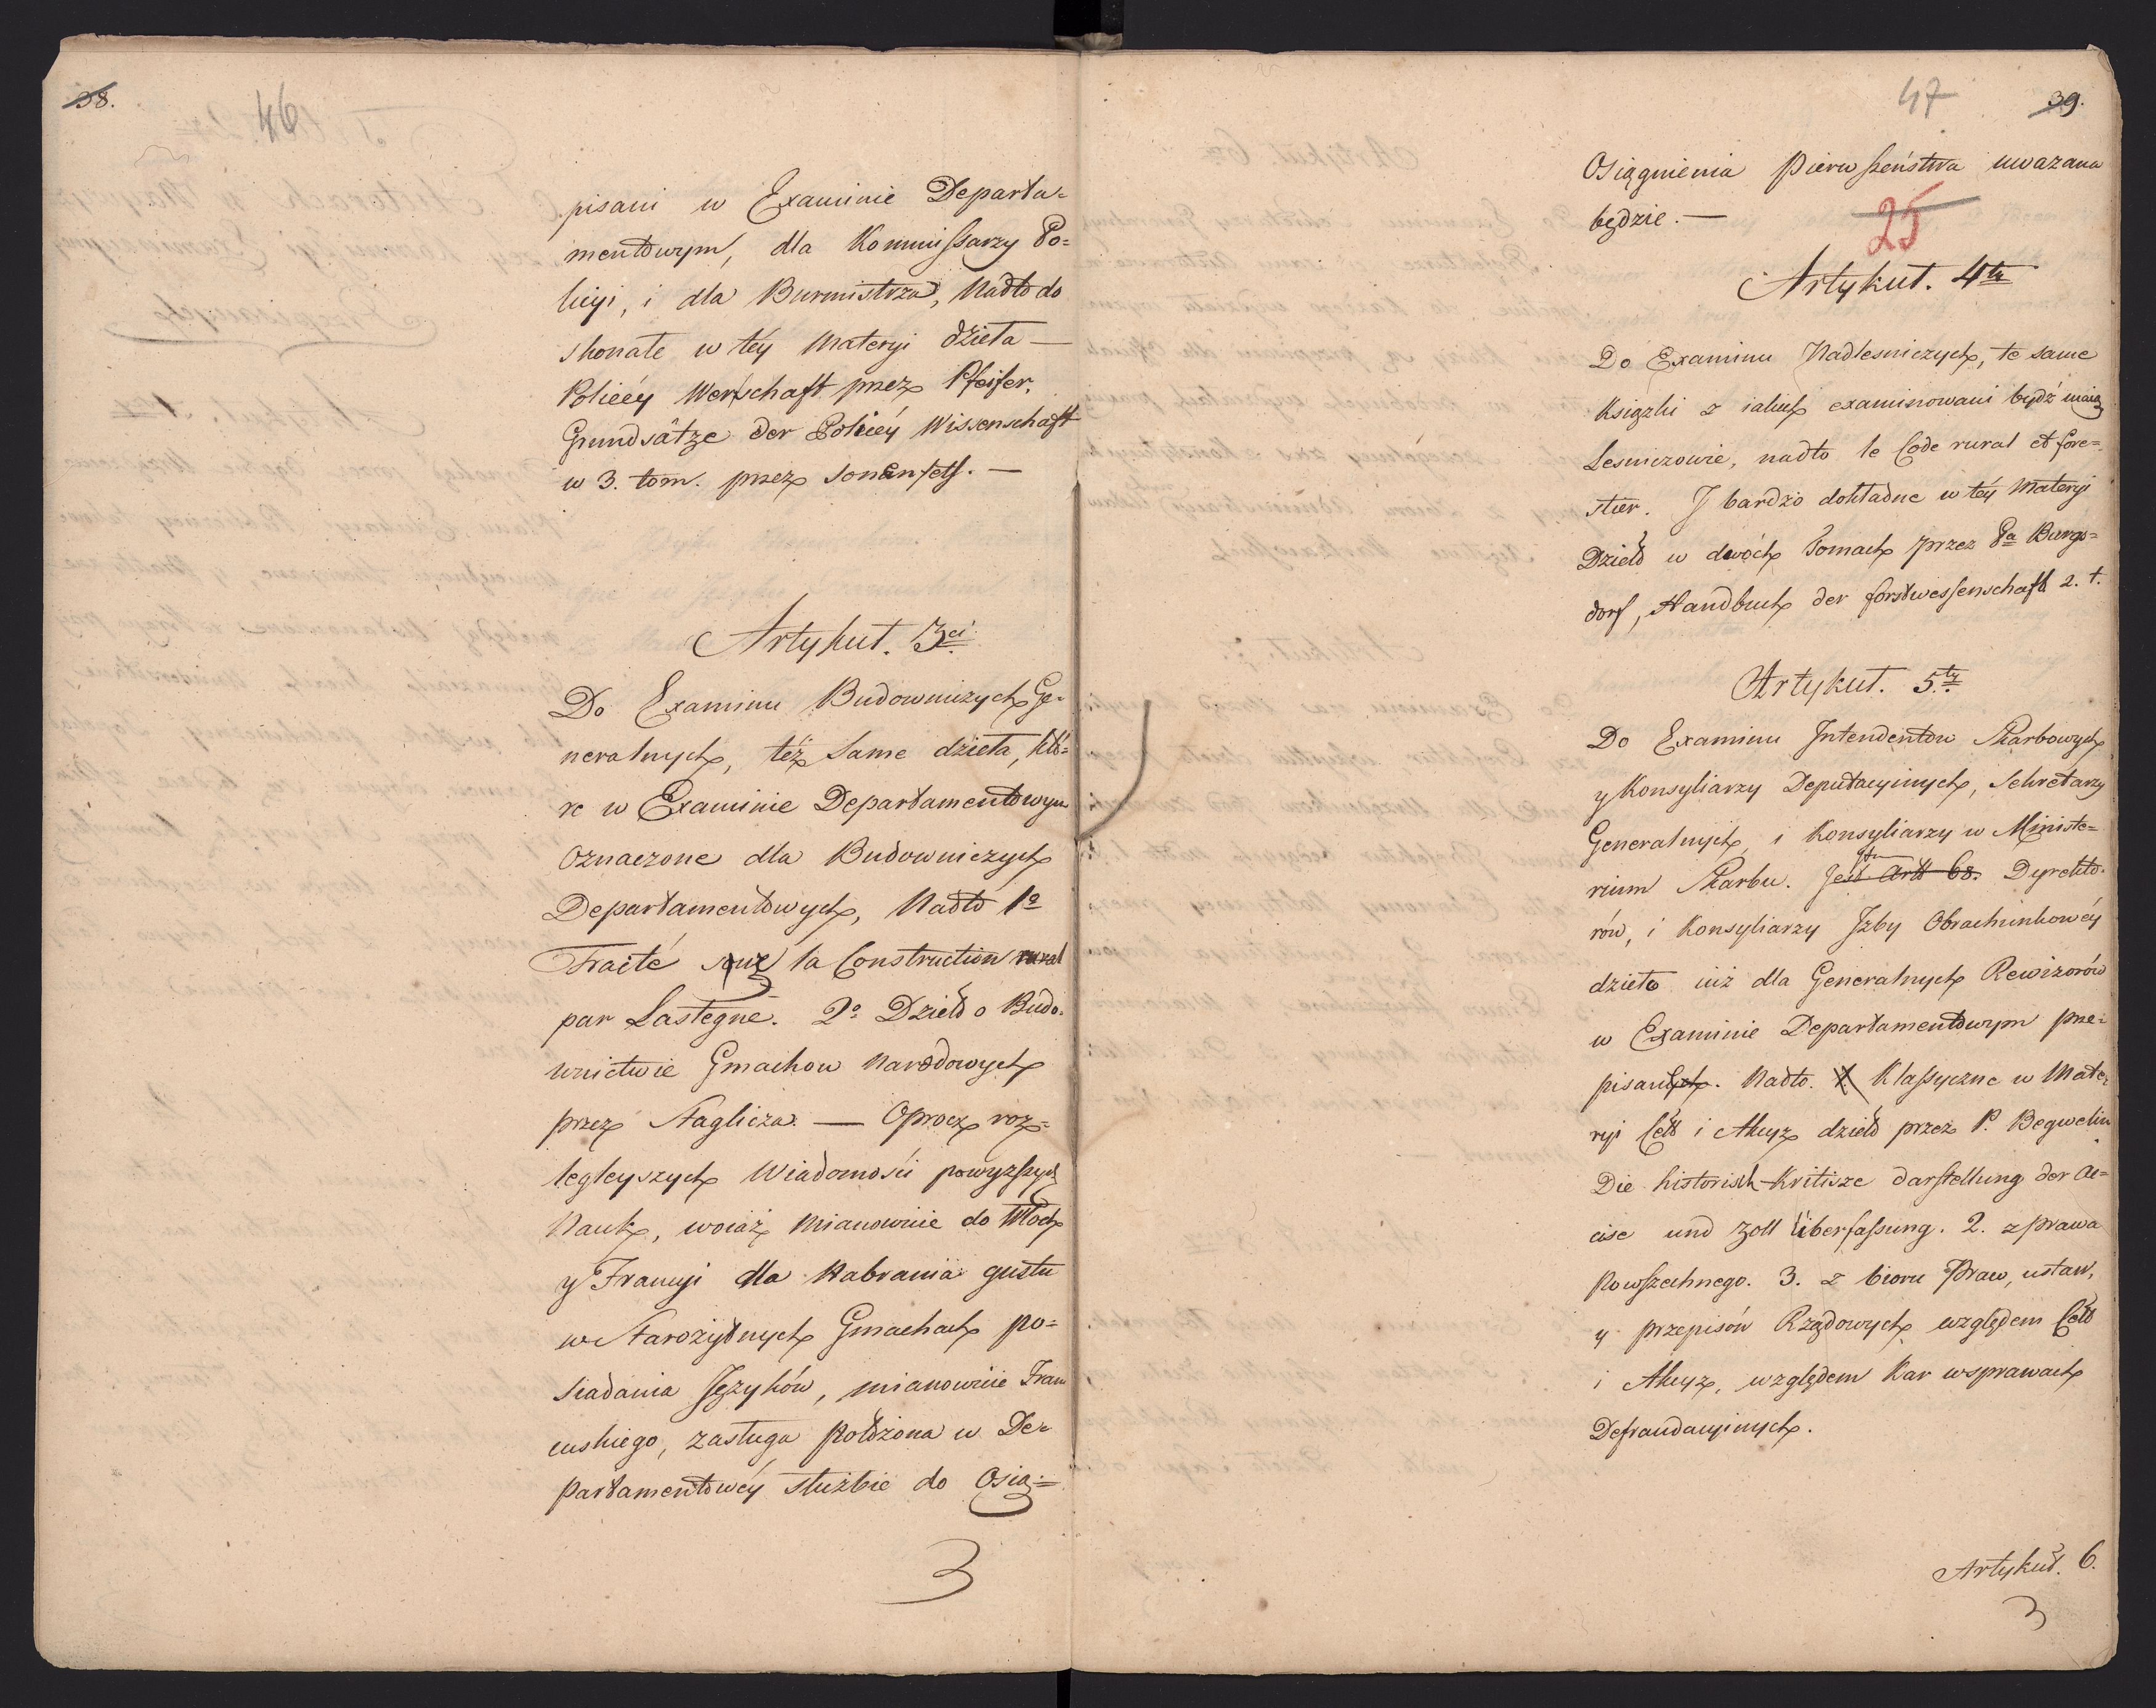 38.
46
pisani w Examinie Departa-
mentowym, dla Kommissarzy Po=
licyi, i dla Burmistrza, Nadto do
skonałe w téy Materyi dzieła —
Policéy Werschaft przez Pfeifer.
Grundsätze der Policéy Wissenschaft
w 3. tom. przez Sonenfels. —
Artykuł. 3ci
Do Examinu Budowniczych Ge-
neralnych, też same dzieła, któ=
re w Examinie Departamentowym
Oznaczone dla Budowniczych
Departamentowych, Nadto 1o
Traité sur la Construction rural
par Lastegne. 2o Dzieło o Budo-
wnictwie Gmachow Narodowych
przez Staglicza. — Oprocz roz=
legleyszych Wiadomości powyższych
Nauk, woiaż mianowicie do Włoch
y Francyi dla Nabrania gustu
w Starożytnych Gmachach po=
siadania Języków, mianowicie Fran
cuskiego, zasługa położona w De-
partamentowéy służbie do Osią=
3
47
39.
Osiągnienia Pierwszeństwa uwazana
będzie. —
25
Artykuł. 4ty
Do Examinu Nadlesniczych, te same
Książki z iakich examinowani bydź maią
Lesniczowie, nadto le Code rural et fore=
stier. J bardzo dokładne w téy Materyi
Dzieło w dwóch Tomach przez Pa Burgs=
dorf, Handbuch der forstwessenschaft 2. t.
Artykuł. 5ty
Do Examinu Jntendentów Skarbowych
y Konsyliarzy Deputacyinych, Sekretarzy
Generalnych, i Konsyliarzy w Ministe=
rium Skarbu. Jest Artt 68. Dyrekto-
rów, i Konsyliarzy Jzby Obrachunkowéy
dzieło iuż dla Generalnych Rewizorów
w Examinie Departamentowym prze=
pisanych. Nadto. 1. Klassyczne w Mate=
ryi Ceł i Akcyz dzieło przez P. Begwelin
Die historisch-Kritisze darstellung der Ac=
cise und Zoll überfassung. 2. z prawa
Powszechnego. 3. z bioru Praw, ustaw,
y przepisów Rządowych względem Ceł
i Akcyz, względem Kar wsprawach
Defraudacyinych.
Artykuł. 6.
3